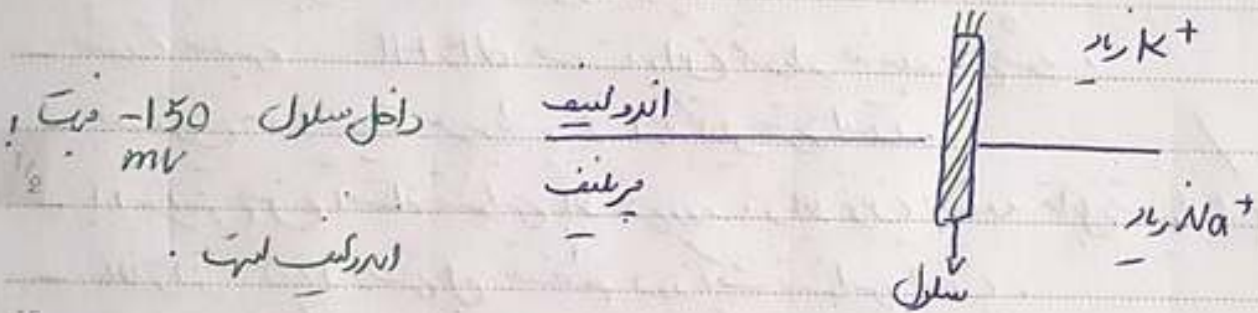 K+ زیاد
اندولنف
داخل سلول 150- نسبت
mv
پریلنف
Na+ زیاد
اندولنف نسبت .
سلول